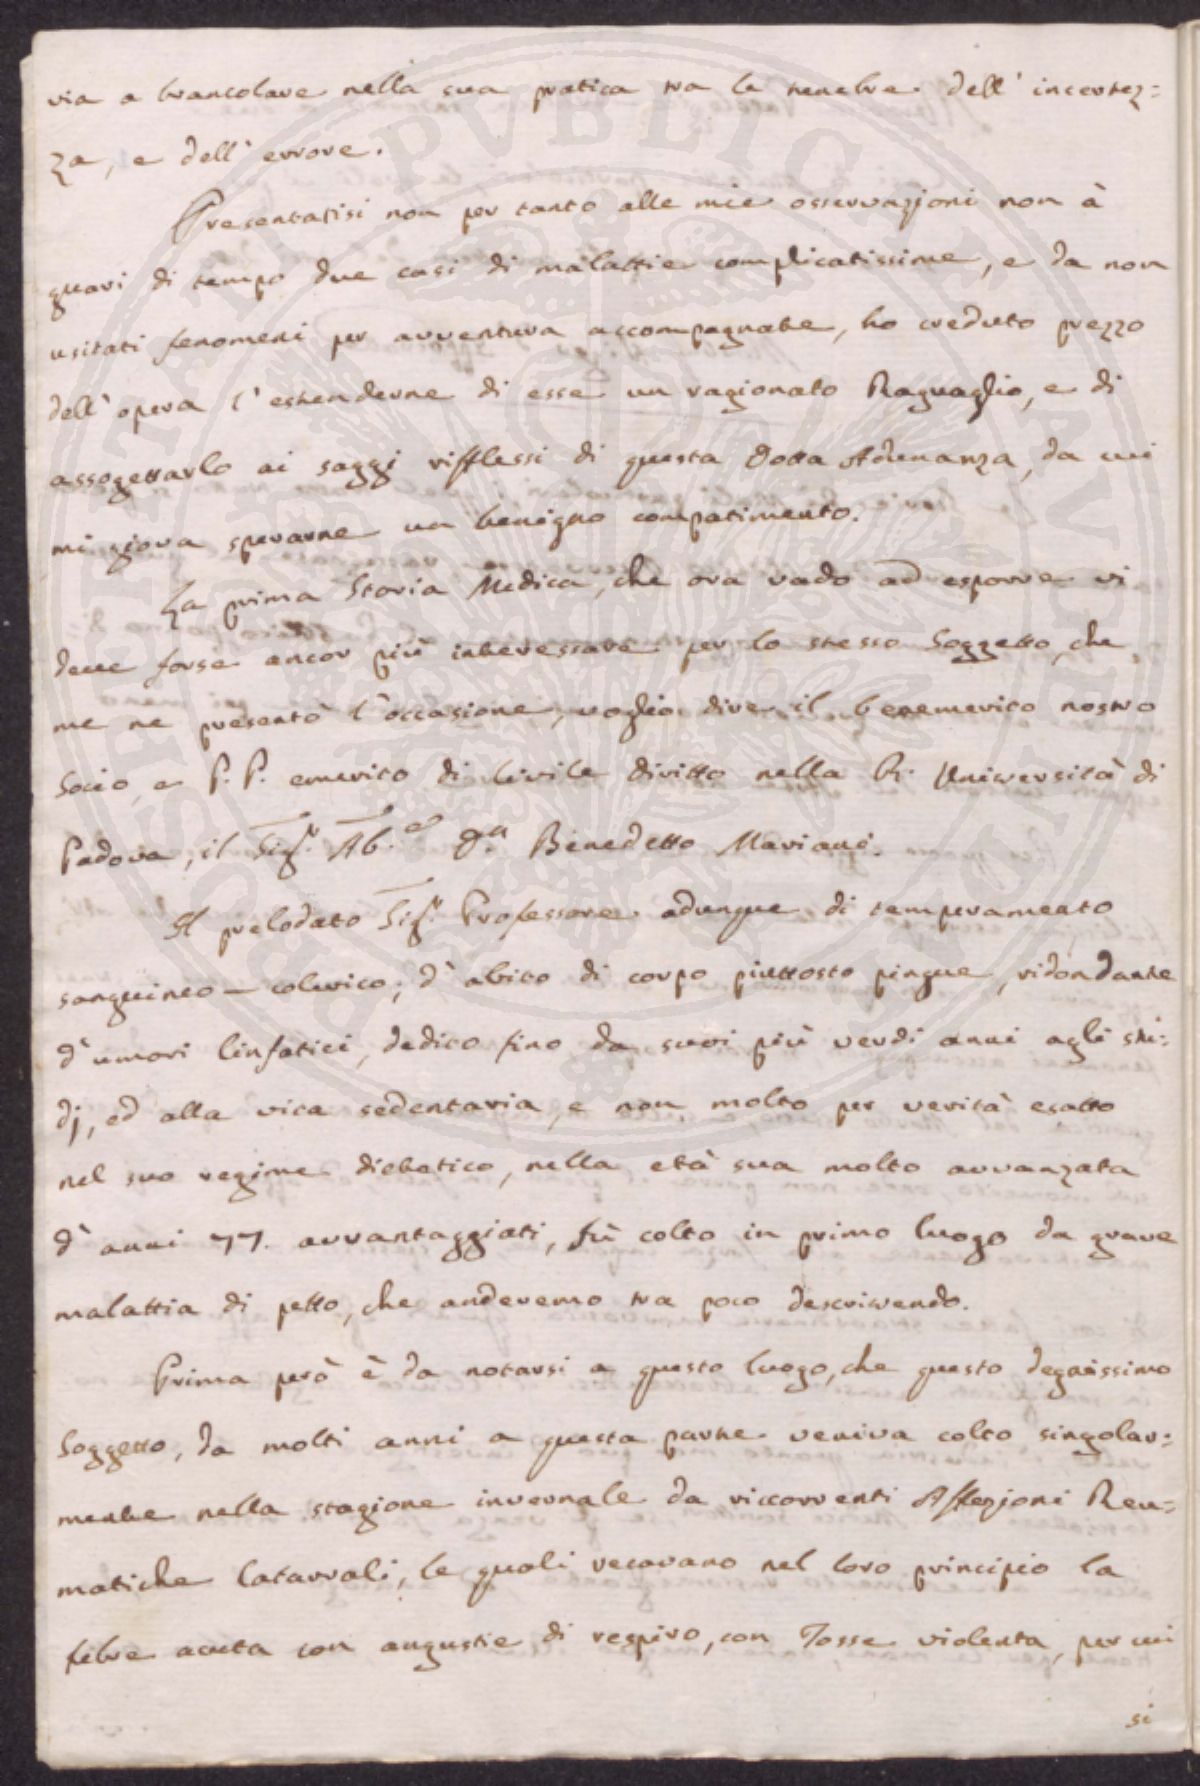 via a brancolare nella sua pratica tra le tenebre dell' incertez:
za, e dell' errore.
Presentatisi non per tanto alle mie osservazioni non à
guari di tempo due casi di malattie complicatissime, e da non
usitati fenomeni per avventura accompagnate, ho creduto prezzo
dell' opera l' estenderne di esse un ragionato Raguaglio, e di
assogettarlo ai saggi rifflessi di questa Dotta Adunanza, da cui
mi giova sperarne un benigno compatimento.
La prima Storia Medica, che ora vado ad esporre vi
deve forse ancor più interessare per lo stesso Soggetto, che
me ne presentò l' occasione, voglio dire il benemerito nostro
Socio, e P. P. emerito di Civile diritto nella R. Università di
Padova, il Sigr. Ab.e Dn Benedetto Mariani.
Il prelodato Sigr. Professore adunque di temperamento
sanguineo - colerico; d' abito di corpo piuttosto pingue, ridondante
d' umori linfatici, dedito fino da suoi più verdi anni agli stu:
dj, ed alla vita sedentaria, e non molto per verità esatto
nel suo regime dietetico, nella età sua molto avvanzata
d' anni 77. avvantaggiati, fù colto in primo luogo da grave
malattia di petto, che anderemo tra poco descrivendo.
Prima però è da notarsi a questo luogo, che questo degnissimo
Soggetto, da molti anni a questa parte veniva colto singolar:
mente nella stagione invernale da riccorrenti Affezioni Reu:
matiche Catarrali, le quali recavano nel loro principio la
febre acuta con angustie di respiro, con Tosse violenta, per cui
si